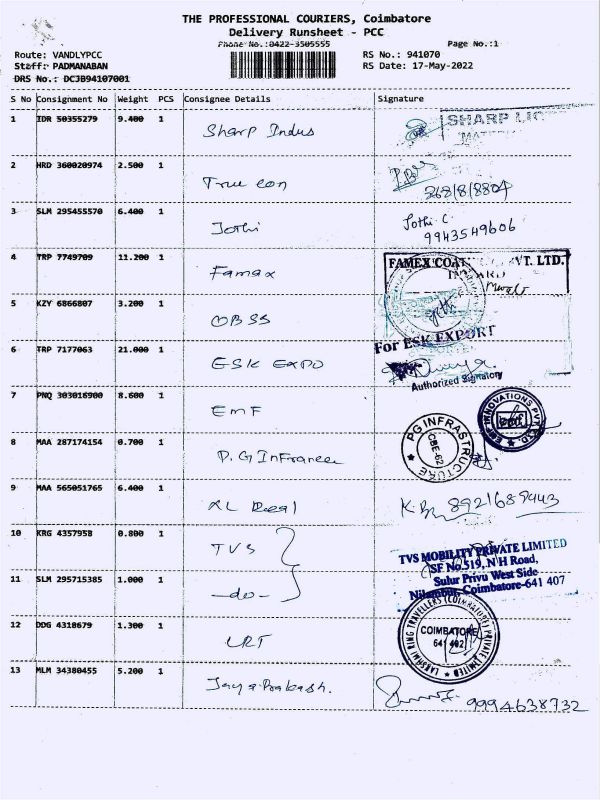 THE PROFESSIONAL COURIERS, Coimbatore
Delivery Runsheet - PCC
Phone No.:0422-3505555
Page No.:1
Route: VANDLYPCC
RS No.: 941070
Staff: PADMANABAN
RS Date: 17-May-2022
DRS No.: DCJB94107001
S No Consignment No Weight PCS Consignee Details Signature
1 IDR 50355279 9.400 1 Sharp Indus
SHARP
2 HRD 360020974 2.500 1 True con
3 SLM 295455570 6.400 1 Jothi
Jothi C
9943549606
4 TRP 7749709 11.200 1 Famax
FAMEX COAT VT. LTD.
5 KZY 6866807 3.200 1 OBSS
For ESK EXPORT
6 TRP 7177063 21.000 1 ESK EXPO
Authorized Signatory
7 PNQ 303016900 8.600 1 EMF
EMF INNOVATIONS PVT. LTD.
8 MAA 287174154 0.700 1 P.G Infra
PG INFRASTRUCTURE
CBE-62
9 MAA 565051765 6.400 1 XL Real
8921689443
10 KRG 4357958 0.800 1 TVS
TVS MOBILITY PRIVATE LIMITED
SF No.519, N H Road,
Sulur Privu West Side
Nilambur, Coimbatore-641 407
11 SLM 295715385 1.000 1 -do-
12 DDG 4318679 1.300 1 LRT
LAKSHMI RING TRAVELLERS (COIMBATORE) PRIVATE LIMITED
COIMBATORE
641 402
13 MLM 34380455 5.200 1 Jaya Prakash.
9994638732